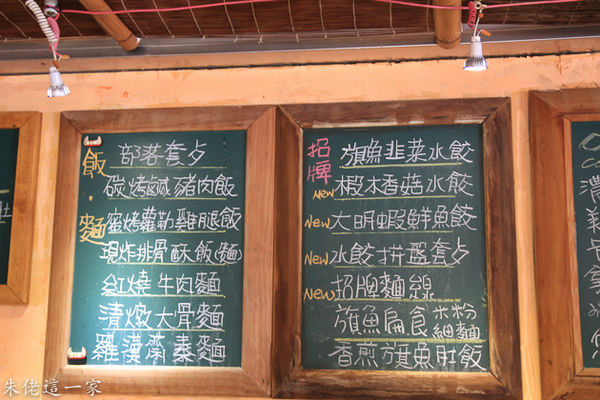 飯·麵
部落套夕
碳烤鹹豬肉飯
蜜烤蘿勒雞腿飯
現炸排骨酥飯(麵)
紅燒牛肉麵
清燉大骨麵
羅漢齋素麵
招牌
旗魚韭菜水餃
New 椴木香菇水餃
New 大明蝦鮮魚餃
New 水餃拼盤套夕
New 招牌麵線
旗魚扁食 米粉 細麵
香煎旗魚肚飯
濃
朱佬這一家